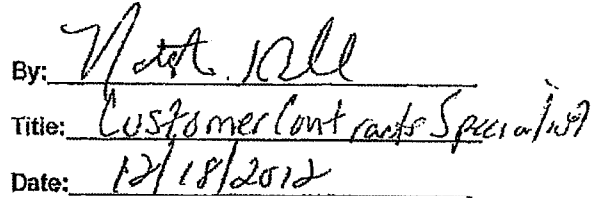 By:
Title: Customer Contracts Specialist
Date: 12/18/2012